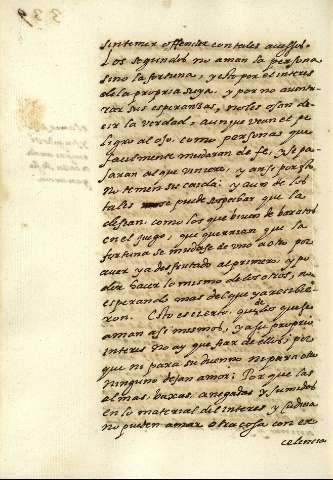 sin temer offender con tales
Los segundos no aman la persona
sino la fortuna, y esto por el interes
de la propria suya. y por no aventu-
rar sus esperansas, no les osan de-
cir la verdad, aunque vean el pe-
ligro al ojo. como personas que
facilmente mudaran de fe, y se pa-
saran al que viniere, y ansi por su
no temen su caida: y aun de los
tales puede sospechar que la
desean. como los que biven de baratos
en el juego, que querrian que la
fortuna se mudase de uno a otro por
aver ya desfrutado al primero, y po-
der hacer lo mismo de los otros, no
esperando mas del que ya recibie-
ron. Esto es cierto, que de los que se
aman a si mesmos, y a su proprio
interes no ay que fiar de ellos; por
que ni para su dueño ni para otro
ninguno dejan amor; Por que las
almas baxas anegadas y sumidas
en lo material del interes y
no pueden amar otra cosa con ex-
celencia